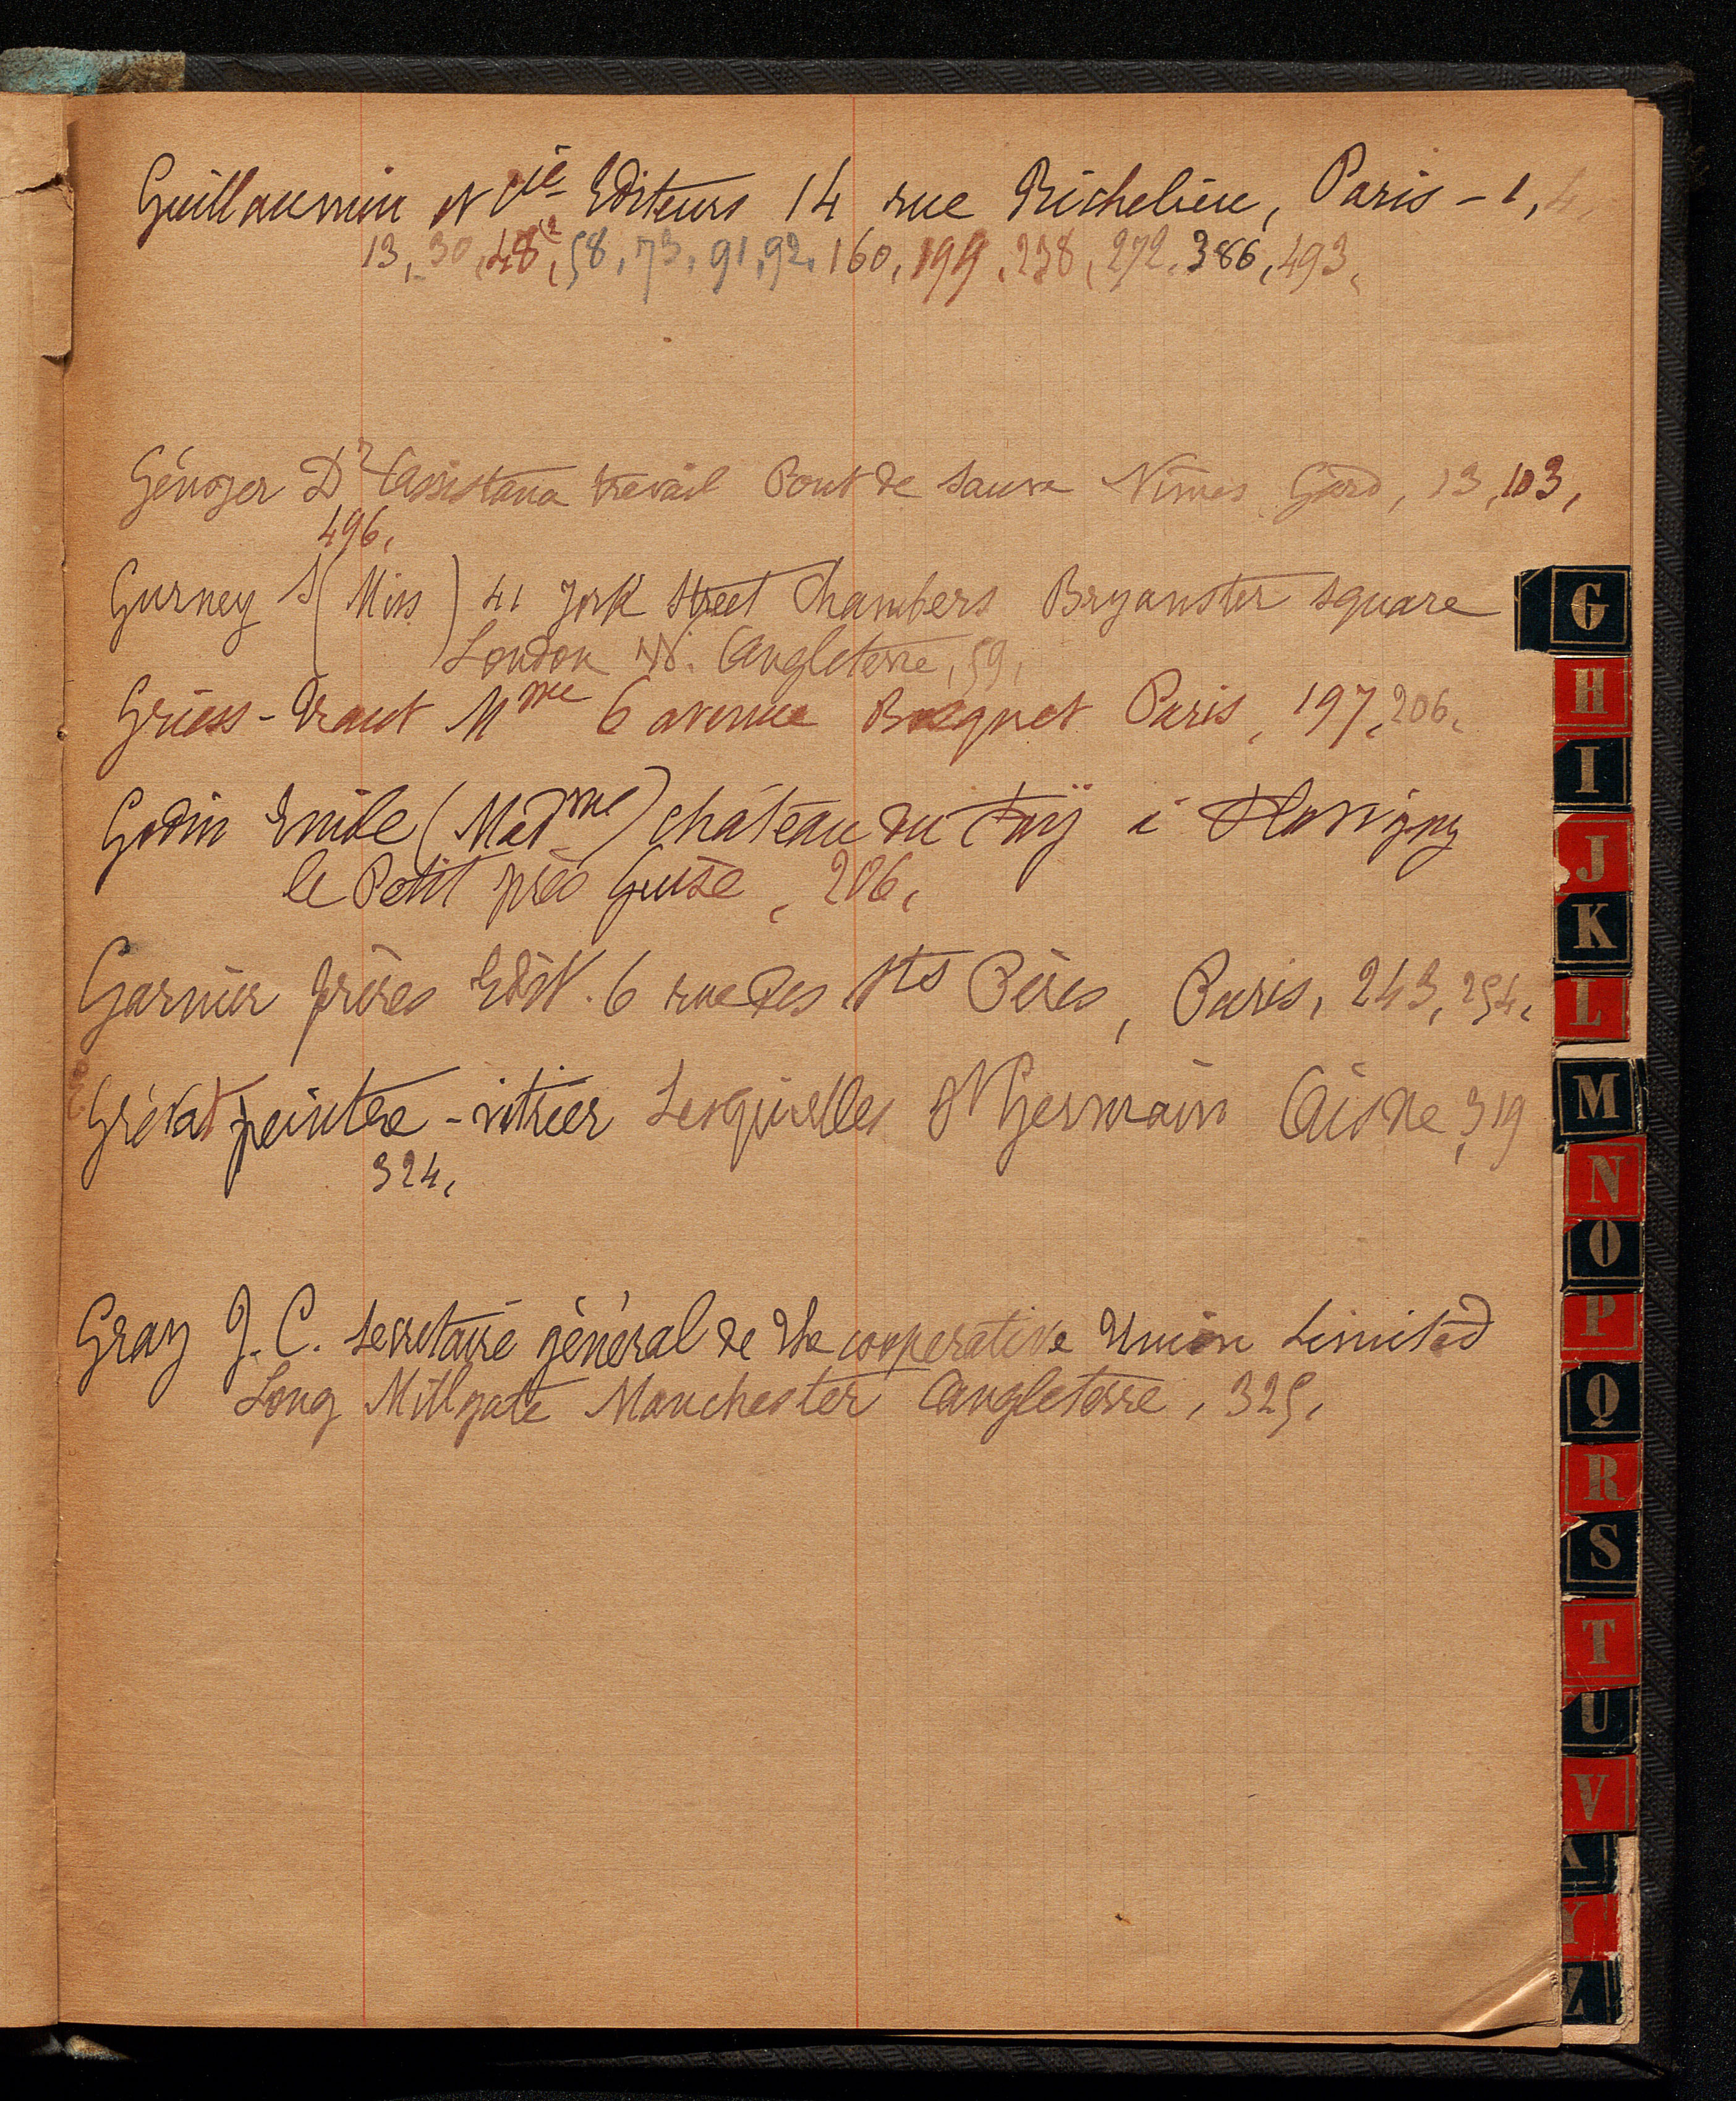 Guillaumin et Cie Editeurs 14 rue Richelieu, Paris - 1, 4,
13, 30, 48(2, 58, 73, 91, 92, 160, 199, 238, 272, 386, 493,
Dr Assistance travail Pont de Sauve Nîmes Gard, 13, 103,
496,
Gurney S (Miss) 41 York Street Chambers Bryanster square
London W. Angleterre, 59,
Griess-Traut Mme 6 avenue Bosquet Paris, 197, 206,
Godin Emile (Madme) château du à Flavigny
le Petit près Guise, 206,
Garnier frères Edit. 6 rue des Sts Pères, Paris, 243, 254,
Grévat peintre-vitrier Lesquielles St Germain Aisne, 319
324,
Gray J. C. Secretaire général de The cooperative Union Limited
Long Millgate Manchester Angleterre, 325,
G
H
I
J
K
L
M
N
O
P
Q
R
S
T
U
V
Y
Z